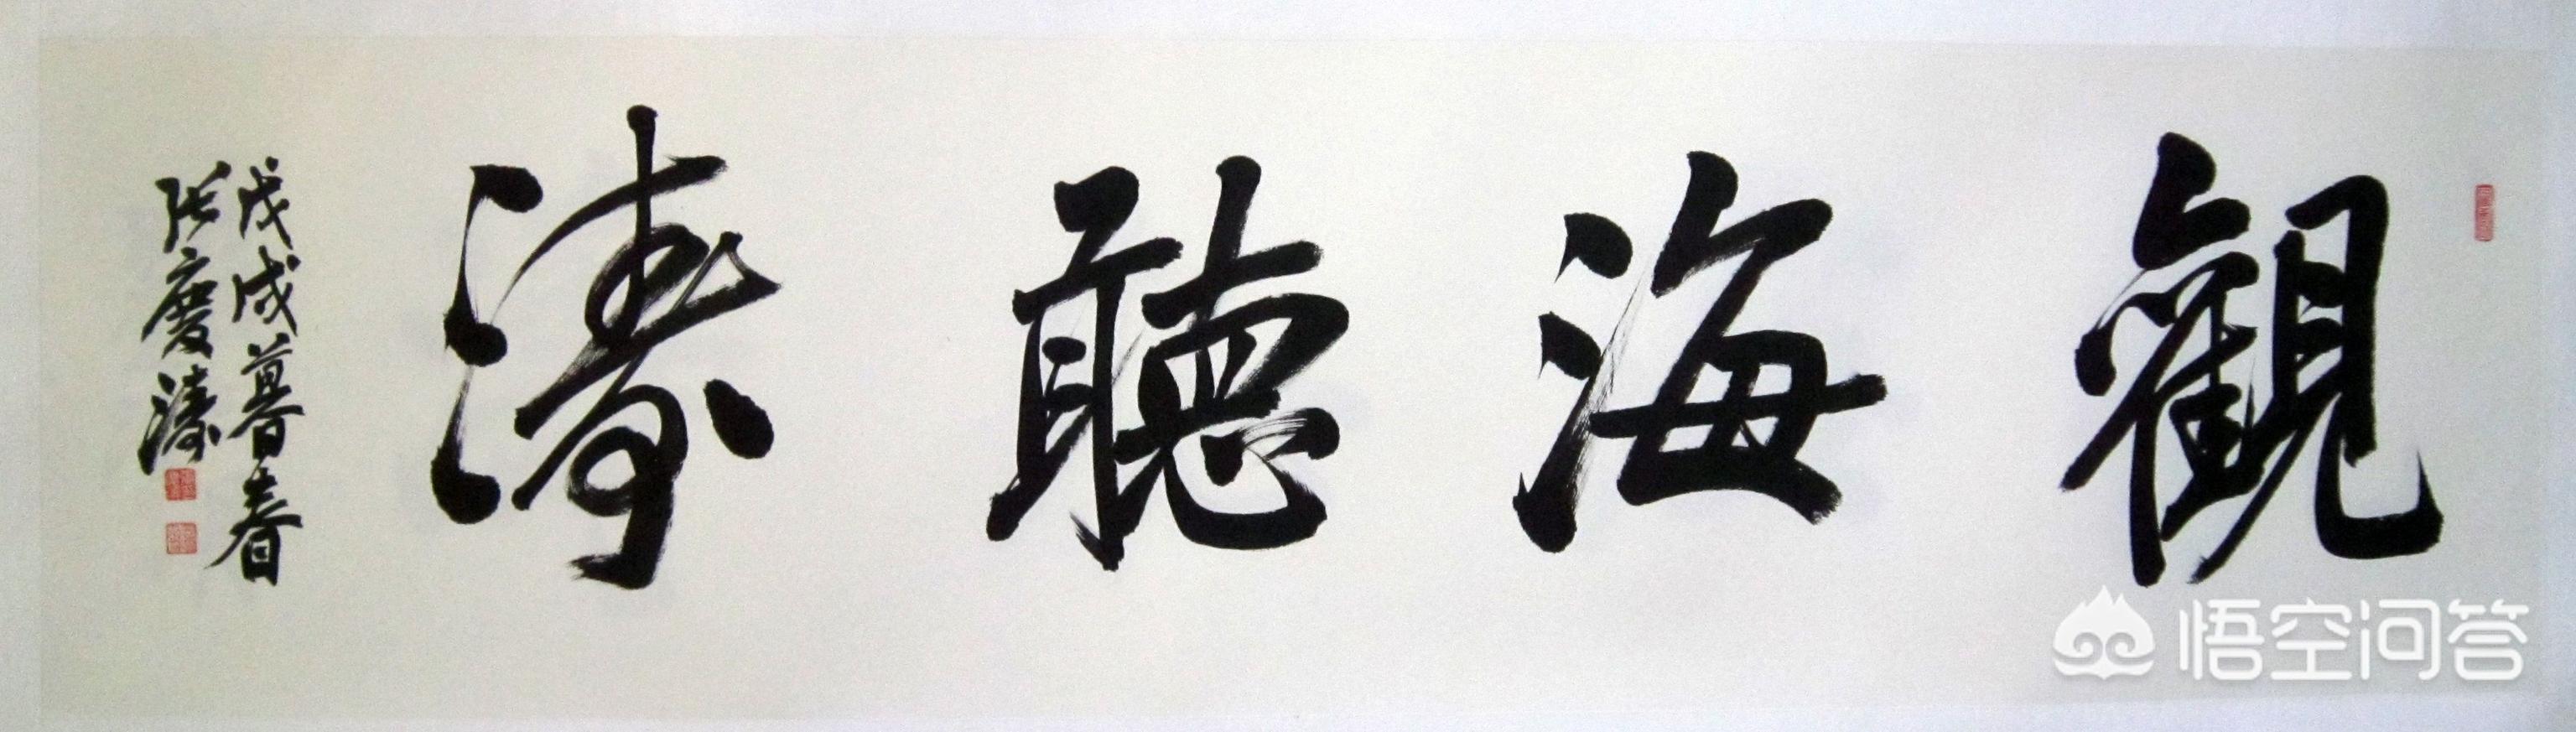 觀海聽濤
戊戌暮春
張慶濤
悟空问答